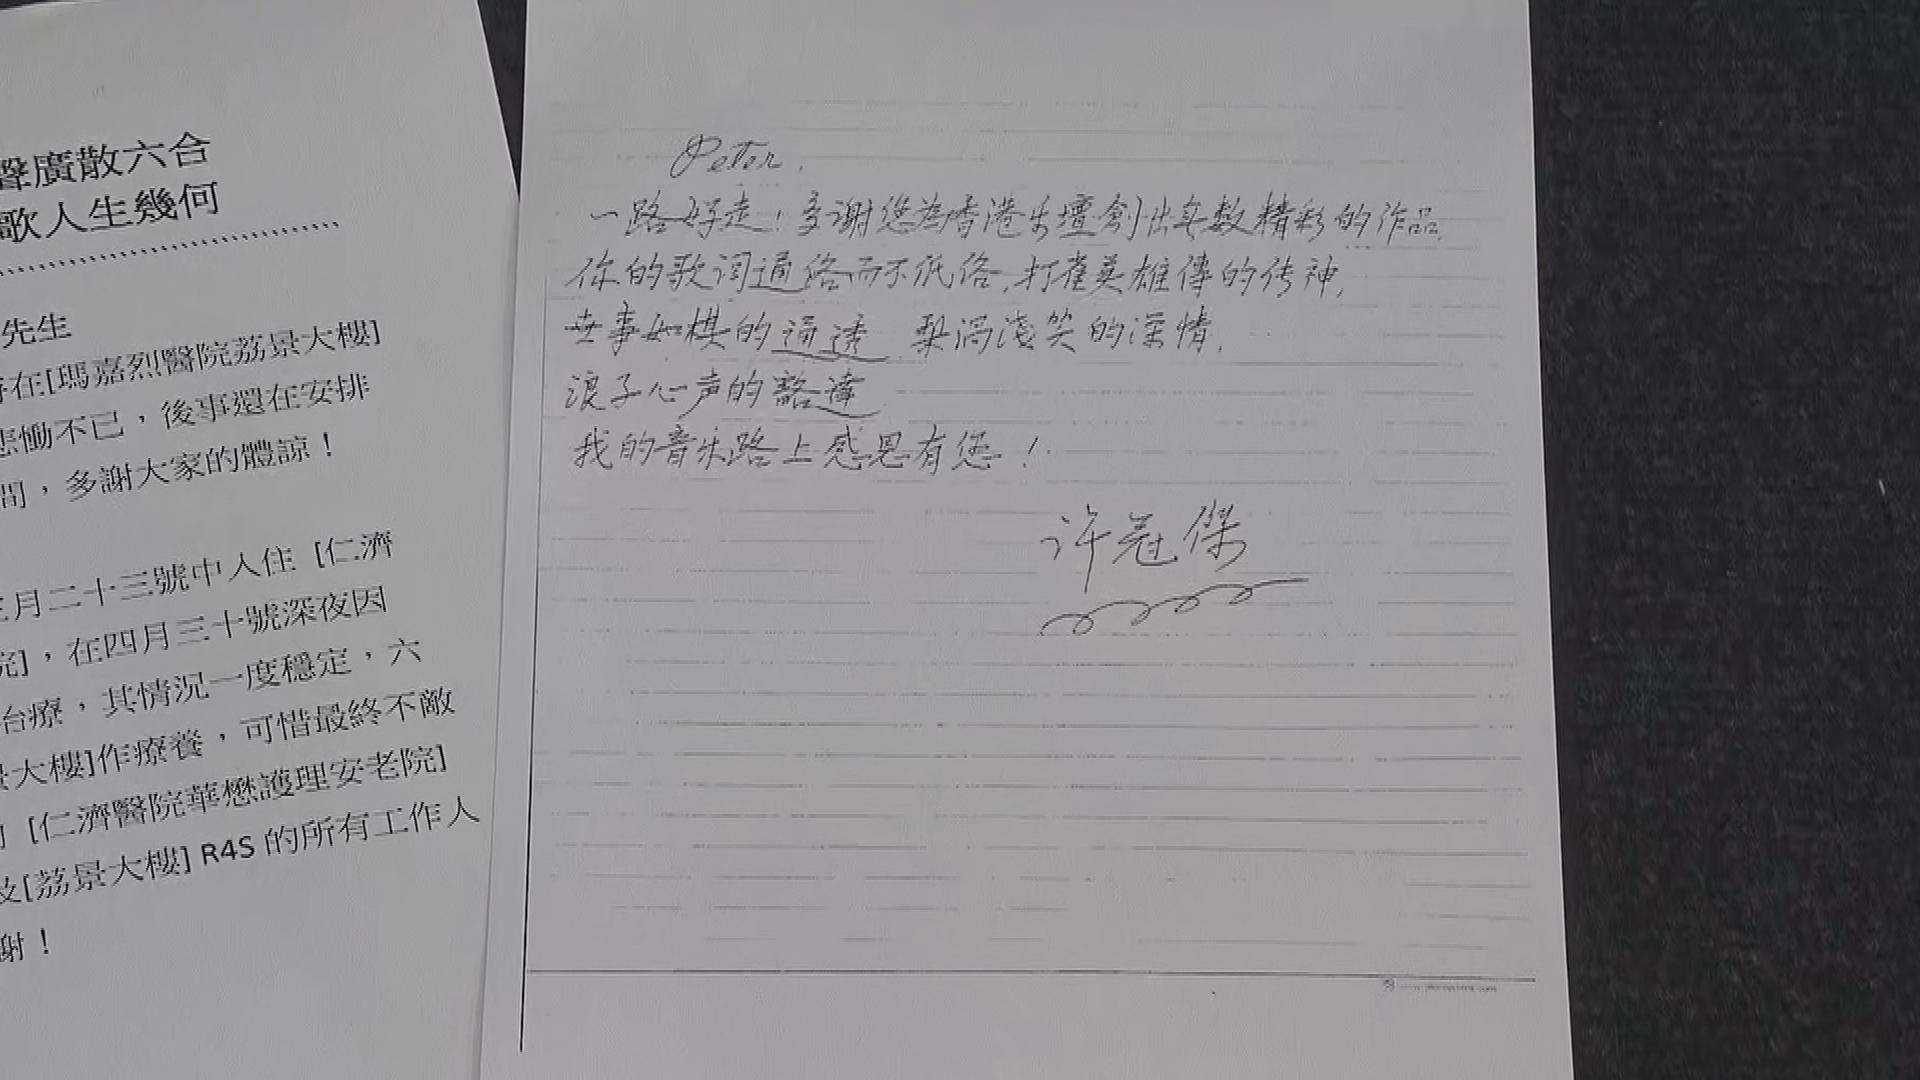 聲廣散六合
歌人生幾何
先生
在[瑪嘉烈醫院荔景大樓]
悲慟不已，後事還在安排
間，多謝大家的體諒！
月二十三號中入住 [仁濟
院]，在四月三十號深夜因
治療，其情況一度穩定，六
景大樓]作療養，可惜最終不敵
[仁濟醫院華懋護理安老院]
及[荔景大樓] R4S 的所有工作人
謝！
Peter,
一路好走！多謝您為香港乐壇創出無数精彩的作品,
你的歌词通俗而不低俗,打雀英雄傳的传神,
世事如棋的通透 梨涡淺笑的深情,…
浪子心声的豁達
我的音乐路上感恩有您！
许冠傑